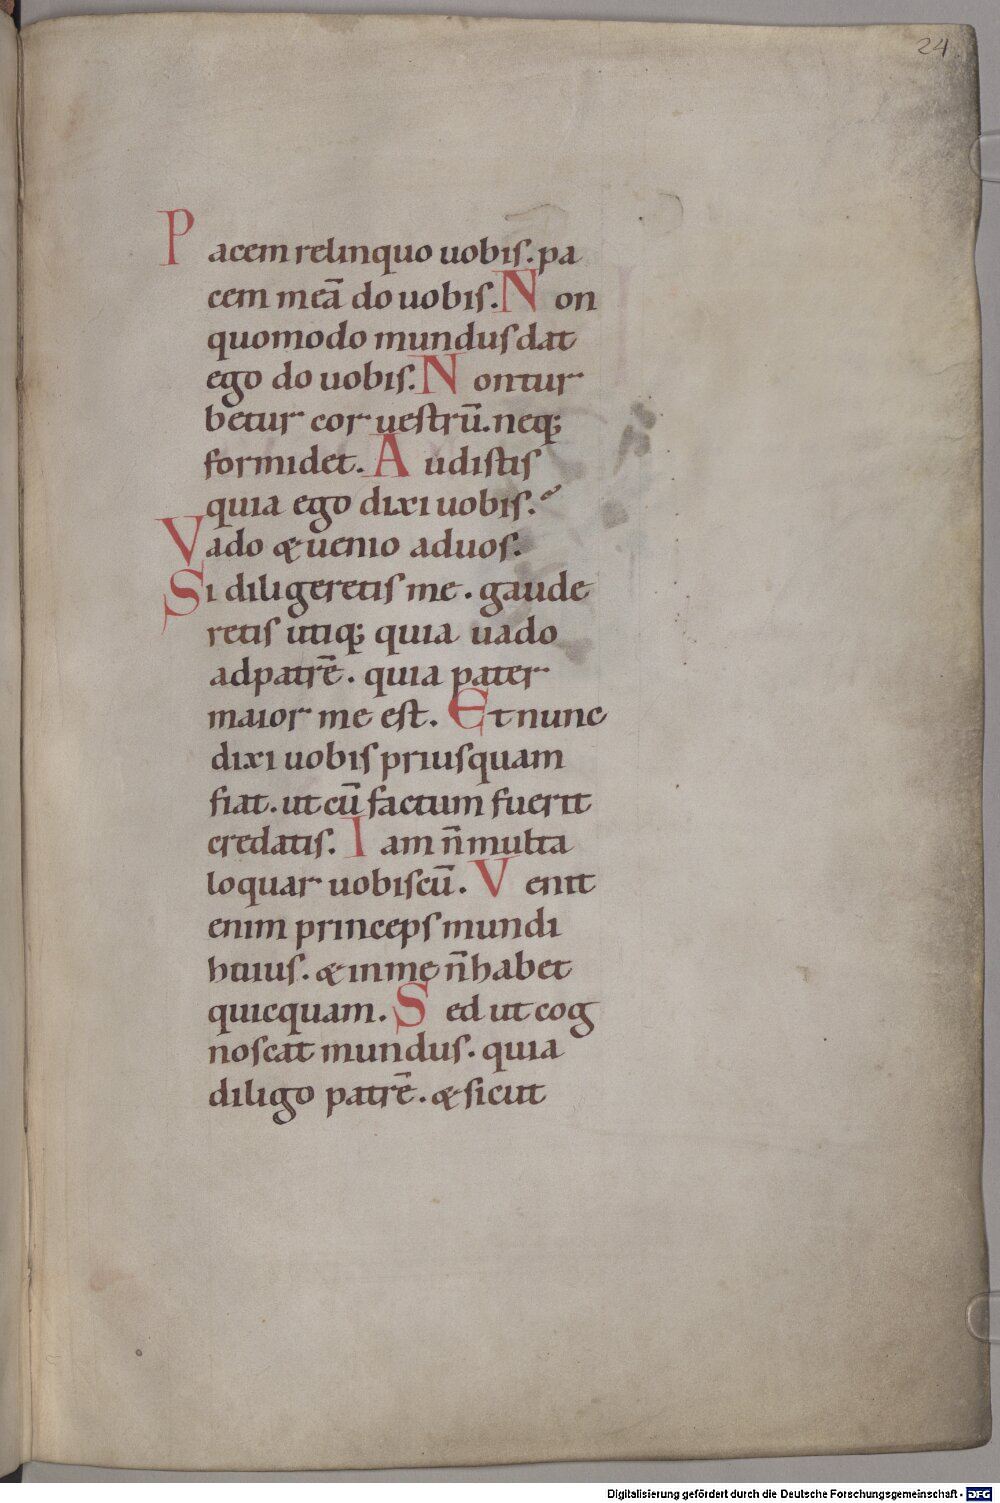 24
Pacem relinquo uobis. pa
cem meā do uobis. Non
quomodo mundus dat
ego do uobis. Non tur
betur cor uestrū. neq;
formidet. Audistis
quia ego dixi uobis.
Vado & uenio ad uos.
Si diligeretis me. gaude
retis utiq; quia uado
ad patrē. quia pater
maior me est. Et nunc
dixi uobis priusquam
fiat. ut cū factum fuerit
credatis. Iam n̄ multa
loquar uobiscū. Venit
enim princeps mundi
huius. & in me n̄ habet
quicquam. Sed ut cog
noscat mundus. quia
diligo patrē. & sicut
Digitalisierung gefördert durch die Deutsche Forschungsgemeinschaft - DFG